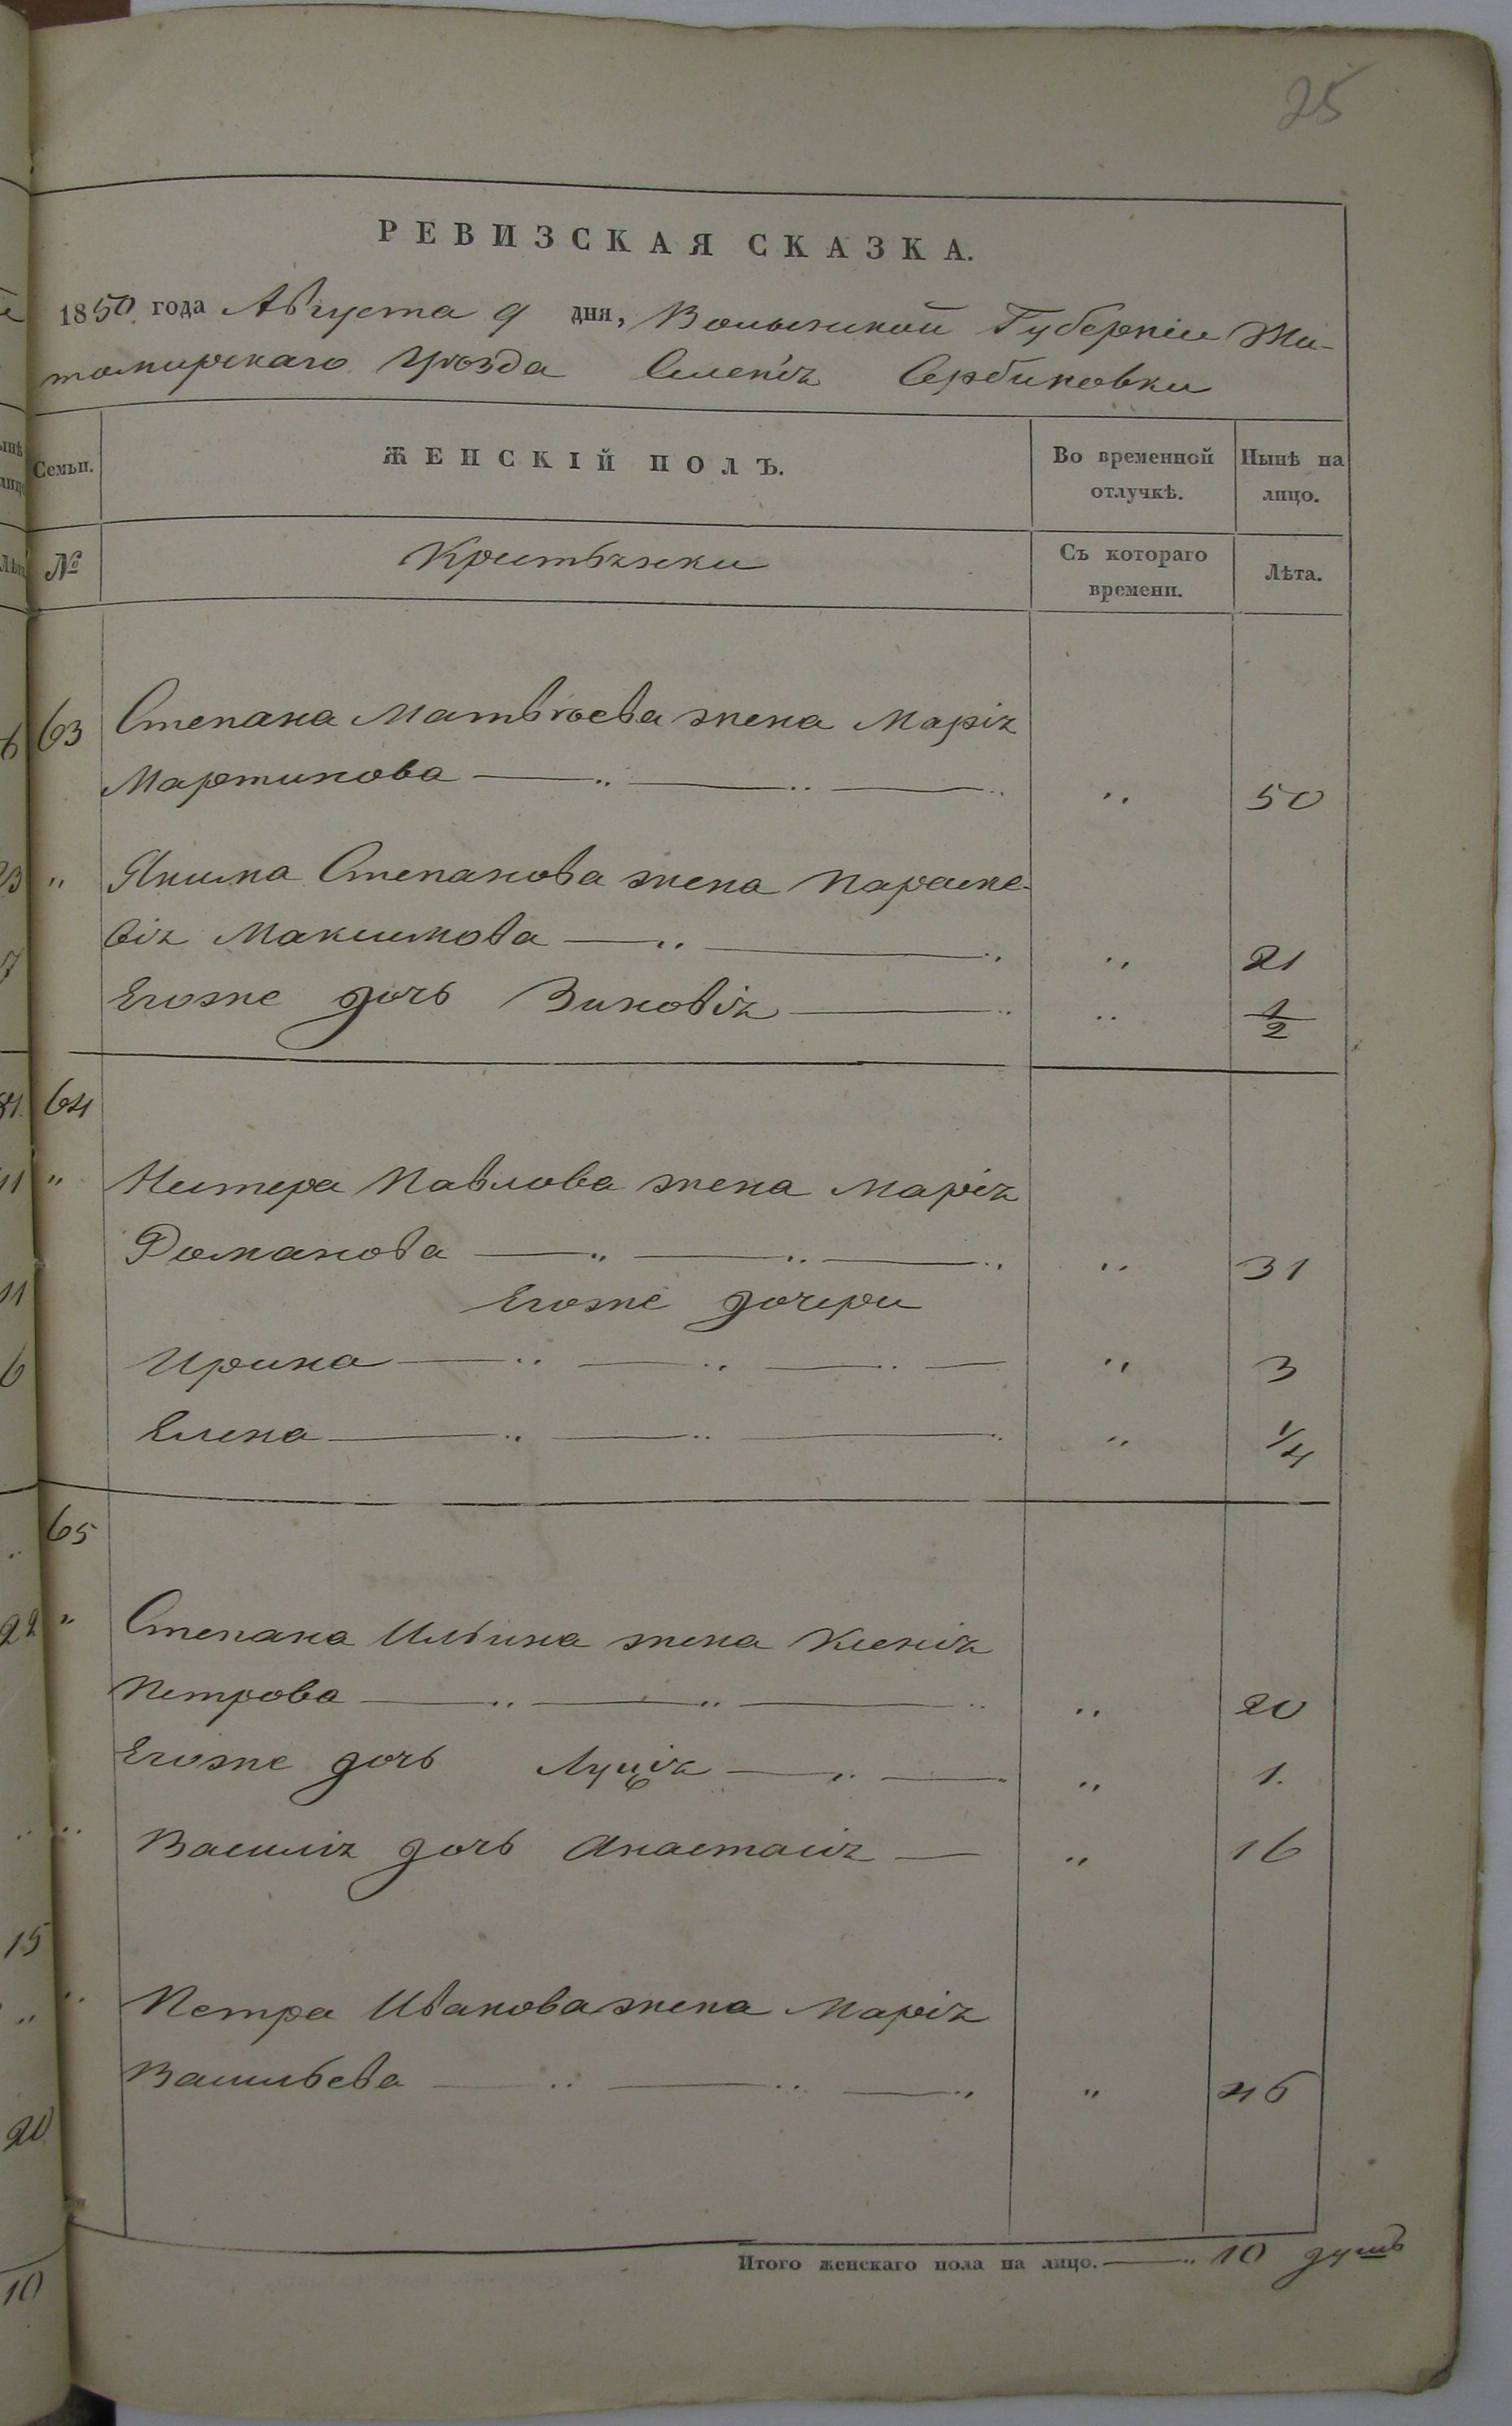 25
РЕВИЗСКАЯ СКАЗКА.
1850 года Августа 9 дня, Волынской Губерніи Жи-
томирскаго Уѣзда Селенія Сербиновки
Семьи. ЖЕНСКІЙ ПОЛЪ. Во временной отлучкѣ. Нынѣ на лицо.
№ Крестьянки Съ котораго времени. Лѣта.
63 Степана Матвѣева жена Марія
Мартинова — „ — „ — „ „ 50
„ Якима Степанова жена Параске-
вія Максимова — „ — „ „ 21
Егоже дочь Зиновія — „ „ 1/2
64
„ Нестера Павлова жена Марія
Романова — „ — „ — „ „ 31
Егоже дочери
Ирина — „ — „ — „ — „ 3
Елена — „ — „ — „ „ 1/4
65
„ Степана Ильина жена Ксенія
Петрова — „ — „ — „ „ 20
Егоже дочь Луція — „ — „ „ 1.
„ Василія дочь Анастасія — „ 16
„ Петра Иванова жена Марія
Васильева — „ — „ — „ „ 46
Итого женскаго пола на лицо. — „ 10 душъ